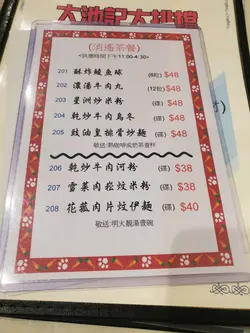 大地記大排檔
(消遙茶餐)
<供應時間下午11:00-4:30>
201 酥炸鯪魚球 (8粒) $48
202 濃湯牛肉丸 (12粒) $48
203 星洲炒米粉 (碟) $48
204 乾炒牛肉烏冬 (碟) $48
205 豉油皇排骨炒麵 (碟) $48
敬送:熱咖啡或奶茶壹杯
206 乾炒牛肉河粉 (碟) $38
207 雪菜肉崧炆米粉 (碟) $38
208 花菰肉片炆伊麵 (碟) $40
敬送:明火靚湯壹碗